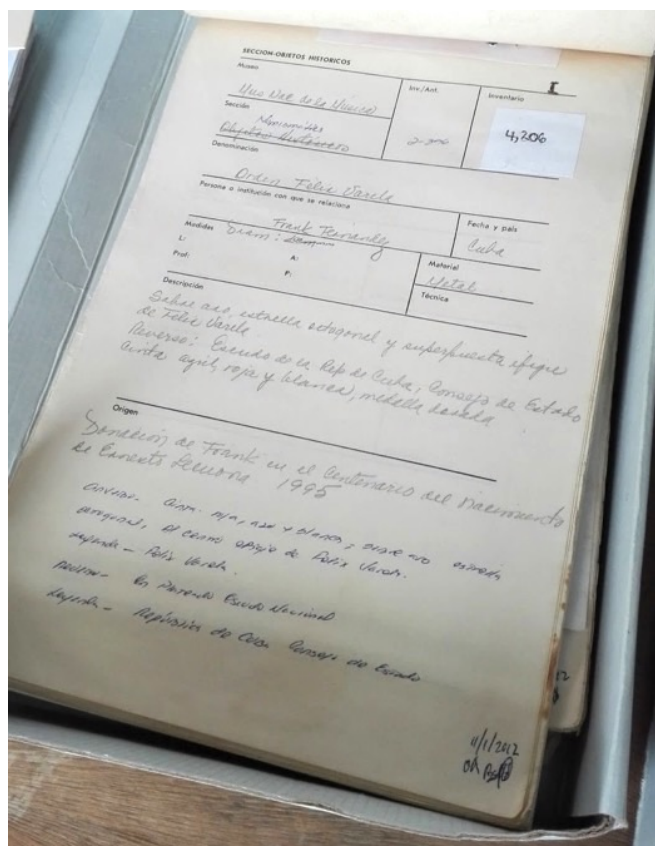 SECCION-OBJETOS HISTORICOS
I
Museo
Inv./Ant.
Inventario
Mus Nac de la Música
4,206
Sección
Numismática
Objetos Históricos
Denominación
Orden Félix Varela
Persona o institución con que se relaciona
Frank Fernández
Fecha y país
Cuba
Medidas
Diam:
L:
A:
Prof:
P:
Material
Metal
Técnica
Descripción
Sobre aro, estrella octogonal y superpuesta efigie
de Félix Varela
Reverso: Escudo de la Rep de Cuba, Consejo de Estado
Cinta azul, roja y blanca, medalla dorada
Origen
Donación de Frank en el Centenario del Nacimiento
de Ernesto Lecuona. 1995
Anverso- Cinta roja, azul y blanca; sobre aro estrella
octogonal, al centro efigie de Félix Varela.
Leyenda- Félix Varela.
Reverso- Escudo Nacional
Leyenda- República de Cuba Consejo de Estado
11/1/2012
OK